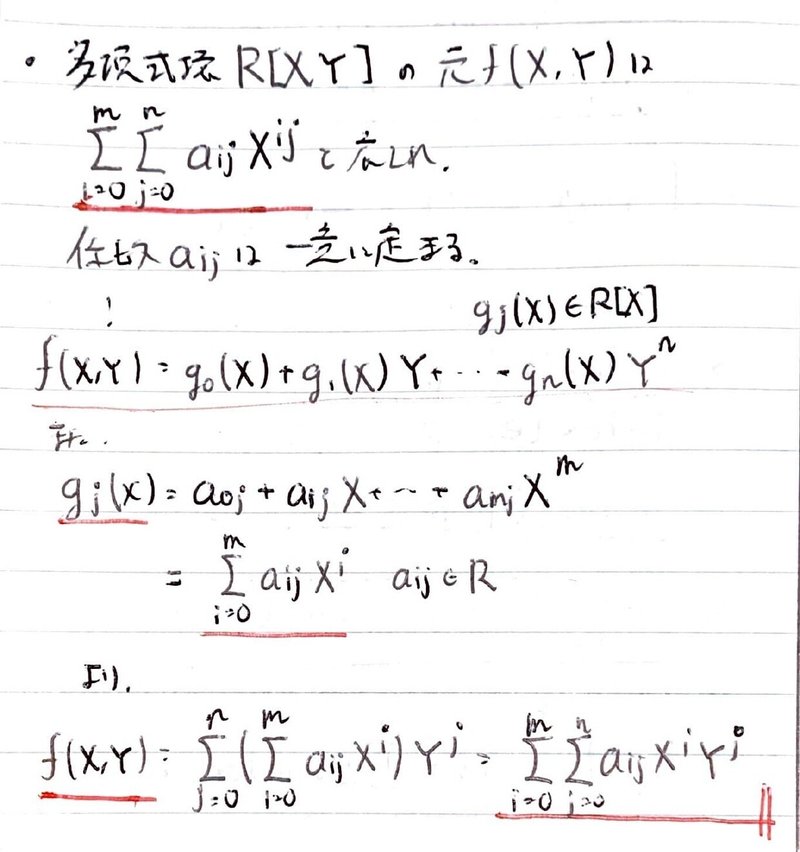 ・多項式環 R[X Y] の 元 f(X, Y) は
m n
∑ ∑ aij X^ij と表され.
i=0 j=0
係数 aij は 一意に定まる。
gj(X) ∈ R[X]
f(X,Y) = g0(X) + g1(X) Y + ・・・ gn(X) Y^n
また..
gj(x) = a0j + aij X + ・・・ + amj X^m
= ∑_{i=0}^{m} aij X^i aij ∈ R
より.
f(X,Y) = ∑_{j=0}^{n} (∑_{i=0}^{m} aij X^i) Y^j = ∑_{i=0}^{m} ∑_{j=0}^{n} aij X^i Y^j